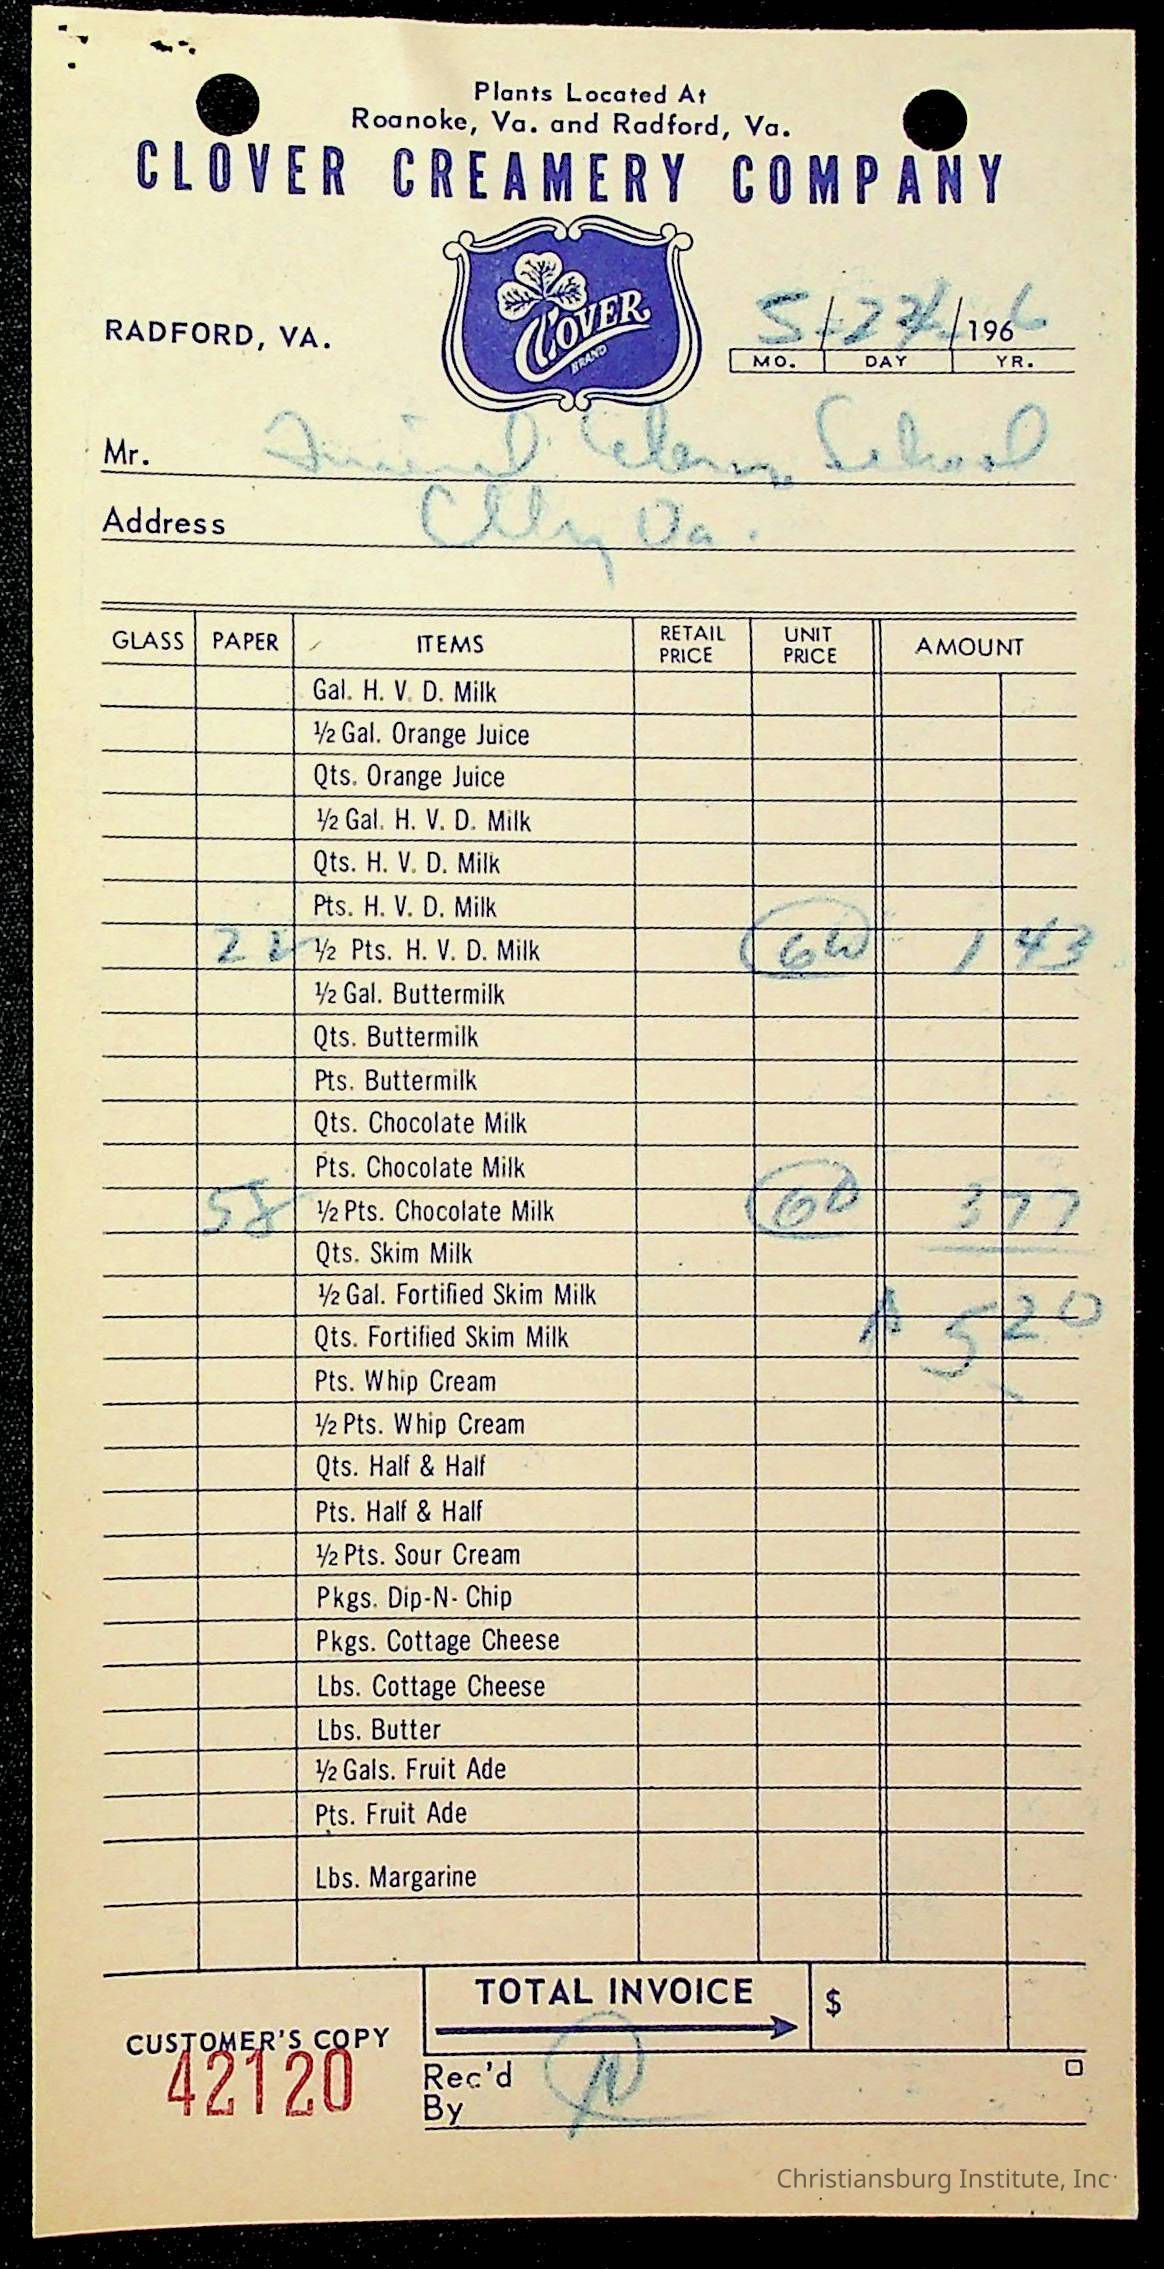 Plants Located At
Roanoke, Va. and Radford, Va.
CLOVER CREAMERY COMPANY
CLOVER
BRAND
RADFORD, VA.
5/24/1966
MO. DAY YR.
Mr. School
Address Va.
GLASS PAPER ITEMS RETAIL PRICE UNIT PRICE AMOUNT
Gal. H. V. D. Milk
½ Gal. Orange Juice
Qts. Orange Juice
½ Gal. H. V. D. Milk
Qts. H. V. D. Milk
Pts. H. V. D. Milk
22 ½ Pts. H. V. D. Milk 1 43
½ Gal. Buttermilk
Qts. Buttermilk
Pts. Buttermilk
Qts. Chocolate Milk
Pts. Chocolate Milk
58 ½ Pts. Chocolate Milk 3 77
Qts. Skim Milk
½ Gal. Fortified Skim Milk
5 20
Qts. Fortified Skim Milk
Pts. Whip Cream
½ Pts. Whip Cream
Qts. Half & Half
Pts. Half & Half
½ Pts. Sour Cream
Pkgs. Dip-N-Chip
Pkgs. Cottage Cheese
Lbs. Cottage Cheese
Lbs. Butter
½ Gals. Fruit Ade
Pts. Fruit Ade
Lbs. Margarine
TOTAL INVOICE $
CUSTOMER'S COPY
42120
Rec'd
By
Christiansburg Institute, Inc